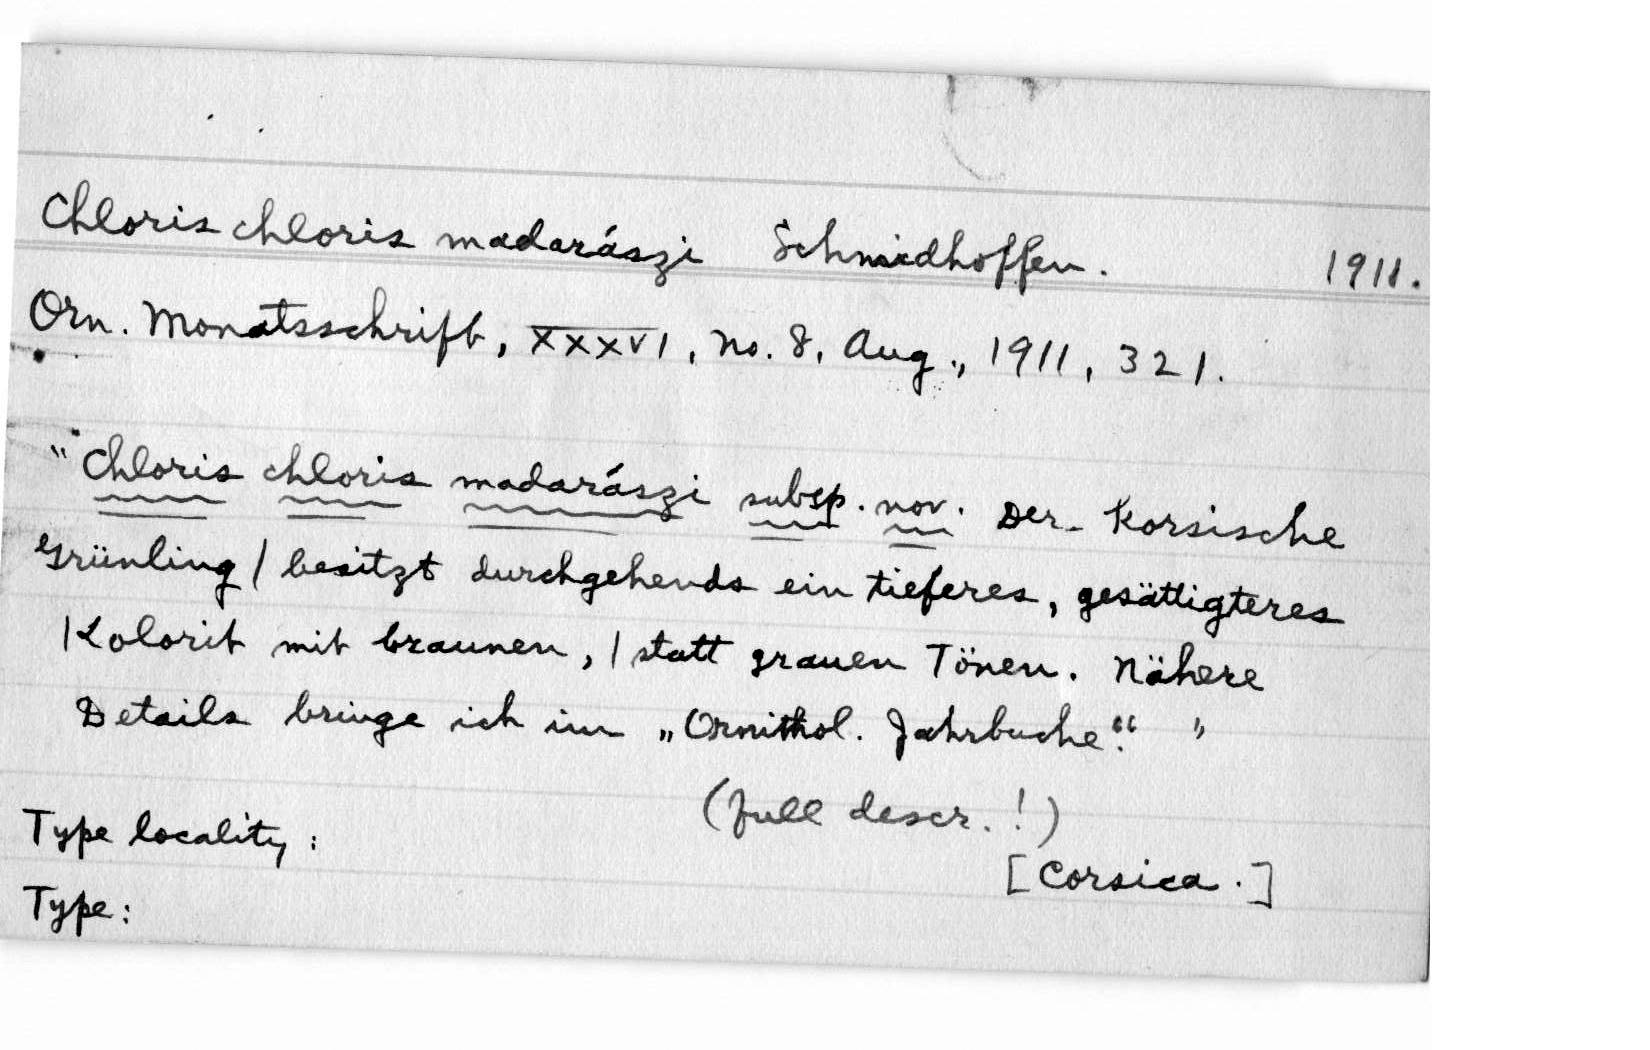 Chloris chloris madarászi Schmidhoffen. 1911.
Orn. Monatsschrift, XXXVI, No. 8, Aug., 1911, 321.
"Chloris chloris madarászi subsp. nov. Der Korsische
Grünling / besitzt durchgehends ein tieferes, gesättigteres
/ Kolorit mit braunen, / statt grauen Tönen. Nähere
Details bringe ich im „Ornithol. Jahrbuche“. "
(full descr.!)
Type locality: [Corsica.]
Type: